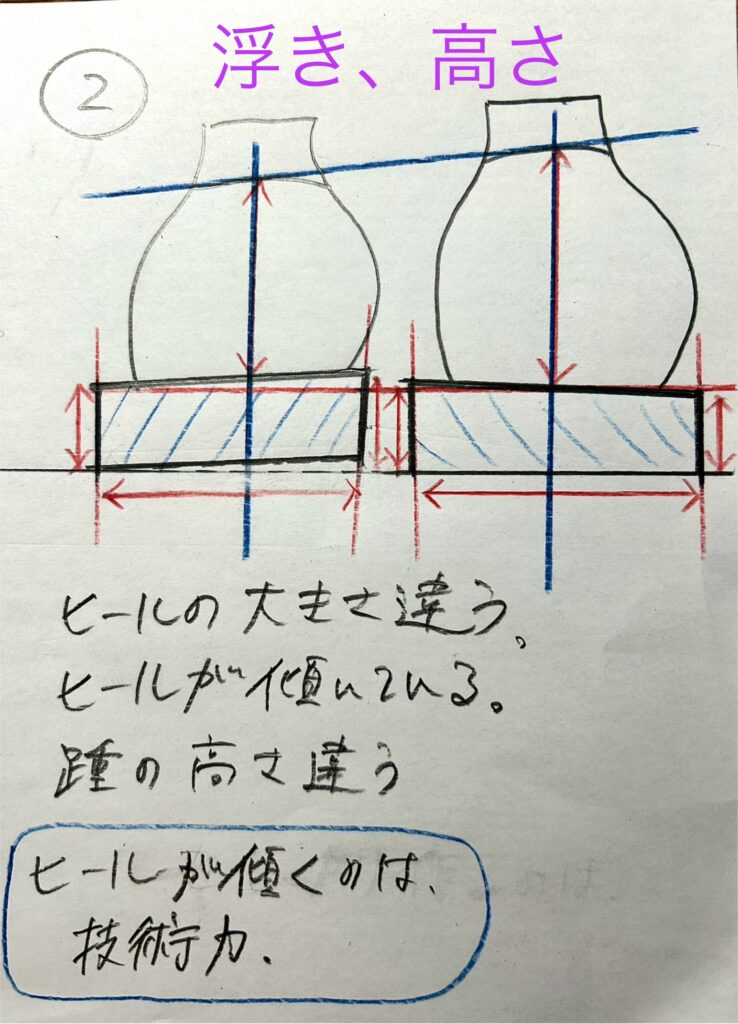 浮き、高さ
2
ヒールの大きさ違う。
ヒールが傾いている。
踵の高さ違う
ヒールが傾くのは、
技術力.